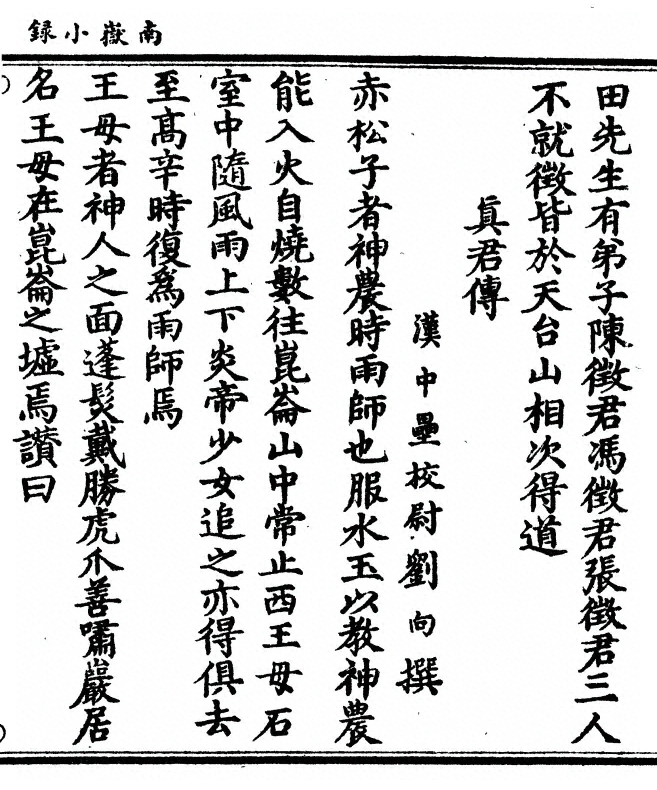 南嶽小録
田先生有弟子陳徵君馮徵君張徵君三人
不就徵皆於天台山相次得道
眞君傳
漢中壘校尉劉向撰
赤松子者神農時雨師也服水玉以教神農
能入火自燒數往崑崙山中常止西王母石
室中隨風雨上下炎帝少女追之亦得俱去
至高辛時復爲雨師焉
王母者神人之面蓬髮戴勝虎爪善嘯巖居
名王母在崑崙之墟焉讃曰